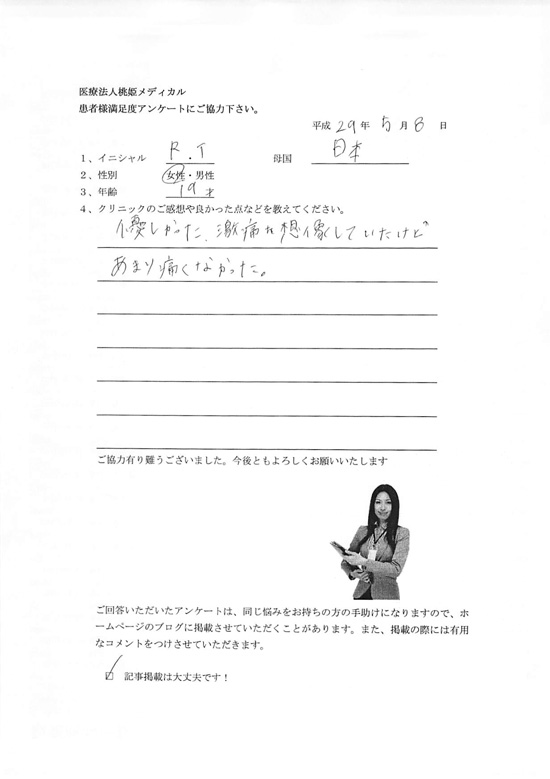 医療法人桃姫メディカル
患者様満足度アンケートにご協力下さい。
平成 29年 5月 8 日
1、イニシャル R.T 母国 日本
2、性別 女性・男性
3、年齢 19才
4、クリニックのご感想や良かった点などを教えてください。
優しかった、激痛を想像していたけど
あまり痛くなかった。
ご協力有り難うございました。今後ともよろしくお願いいたします
ご回答いただいたアンケートは、同じ悩みをお持ちの方の手助けになりますので、ホ
ームページのブログに掲載させていただくことがあります。また、掲載の際には有用
なコメントをつけさせていただきます。
記事掲載は大丈夫です！